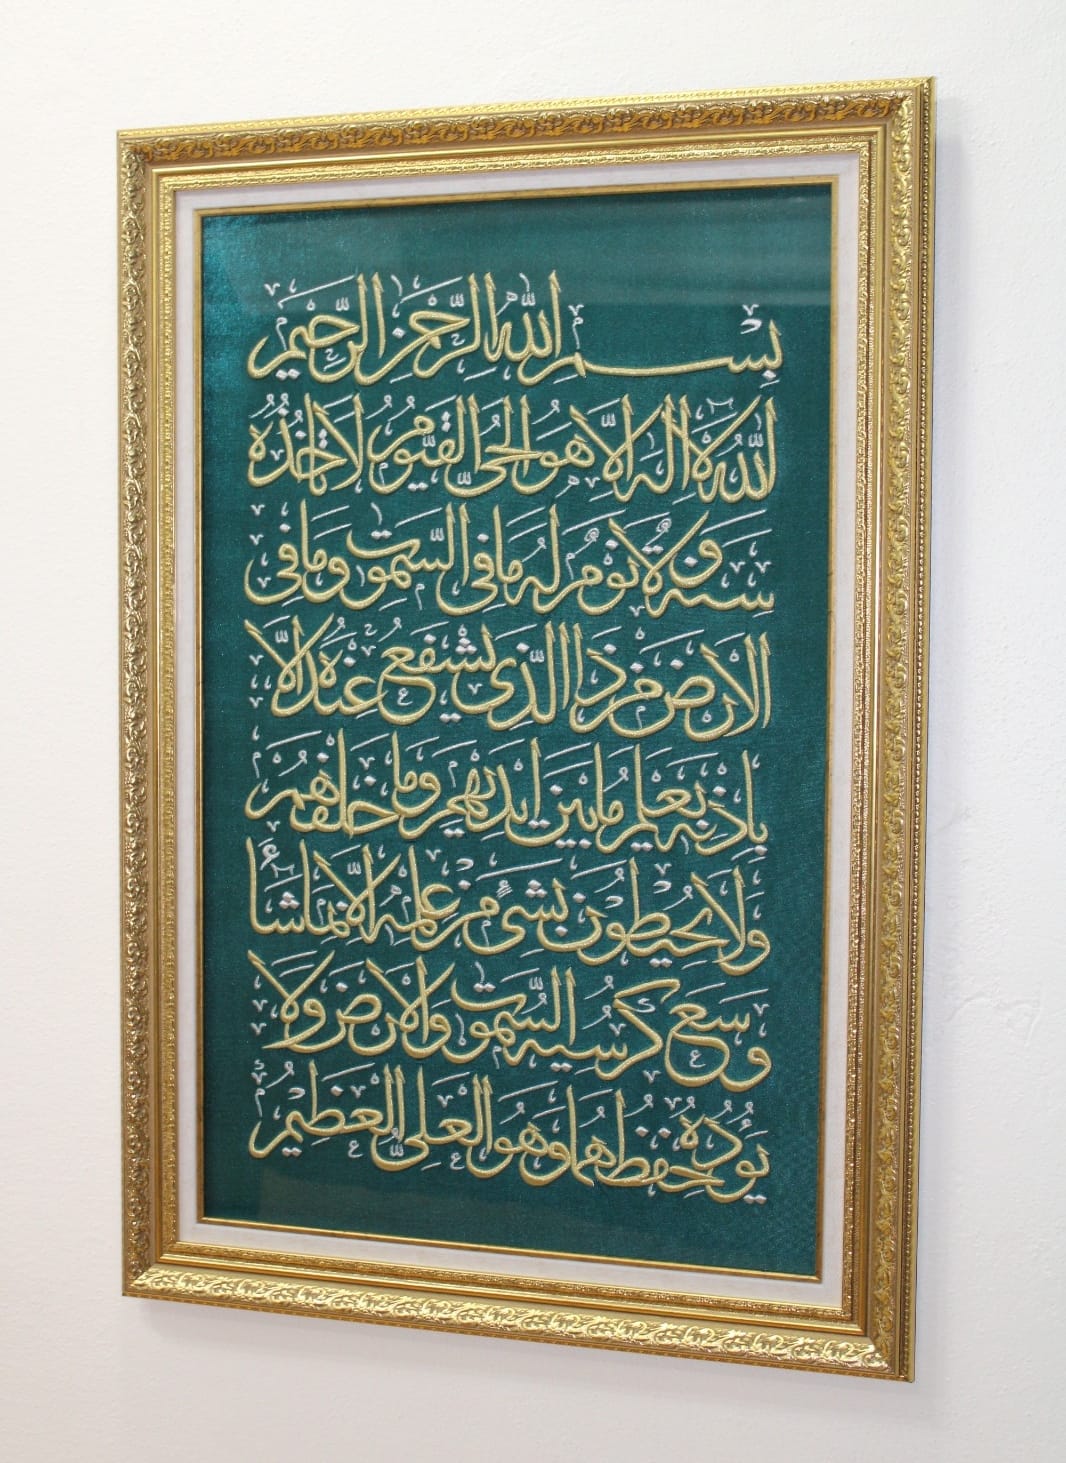 بِسْمِ اللّٰهِ الرَّحْمٰنِ الرَّحِيْمِ
اَللّٰهُ لَآ اِلٰهَ اِلَّا هُوَ الْحَيُّ الْقَيُّوْمُ لَا تَأْخُذُهُ
سِنَةٌ وَّلَا نَوْمٌ لَهُ مَا فِي السَّمٰوٰتِ وَمَا فِي
الْاَرْضِ مَنْ ذَا الَّذِيْ يَشْفَعُ عِنْدَهُ اِلَّا
بِاِذْنِهٖ يَعْلَمُ مَا بَيْنَ اَيْدِيْهِمْ وَمَا خَلْفَهُمْ
وَلَا يُحِيْطُوْنَ بِشَيْءٍ مِّنْ عِلْمِهٖ اِلَّا بِمَا شَآءَ
وَسِعَ كُرْسِيُّهُ السَّمٰوٰتِ وَالْاَرْضَ وَلَا
يَؤُدُهُ حِفْظُهُمَا وَهُوَ الْعَلِيُّ الْعَظِيْمُ